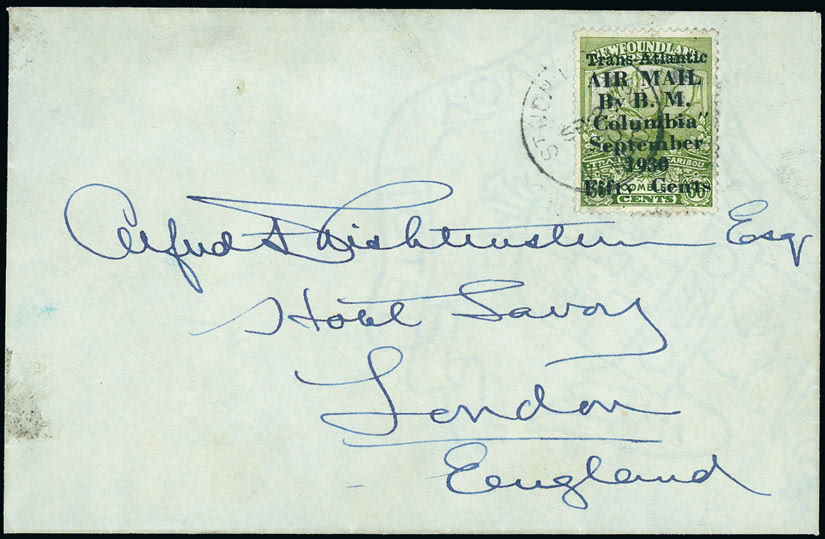 NEWFOUNDLAND
Trans-Atlantic
AIR MAIL
By B. M.
"Columbia"
September
1930
Fifty Cents
TRAIL CARIBOU
COMBLES
CENTS
ST. JOHN'S
Alfred F. Lichtenstein Esq
Hotel Savoy
London
England